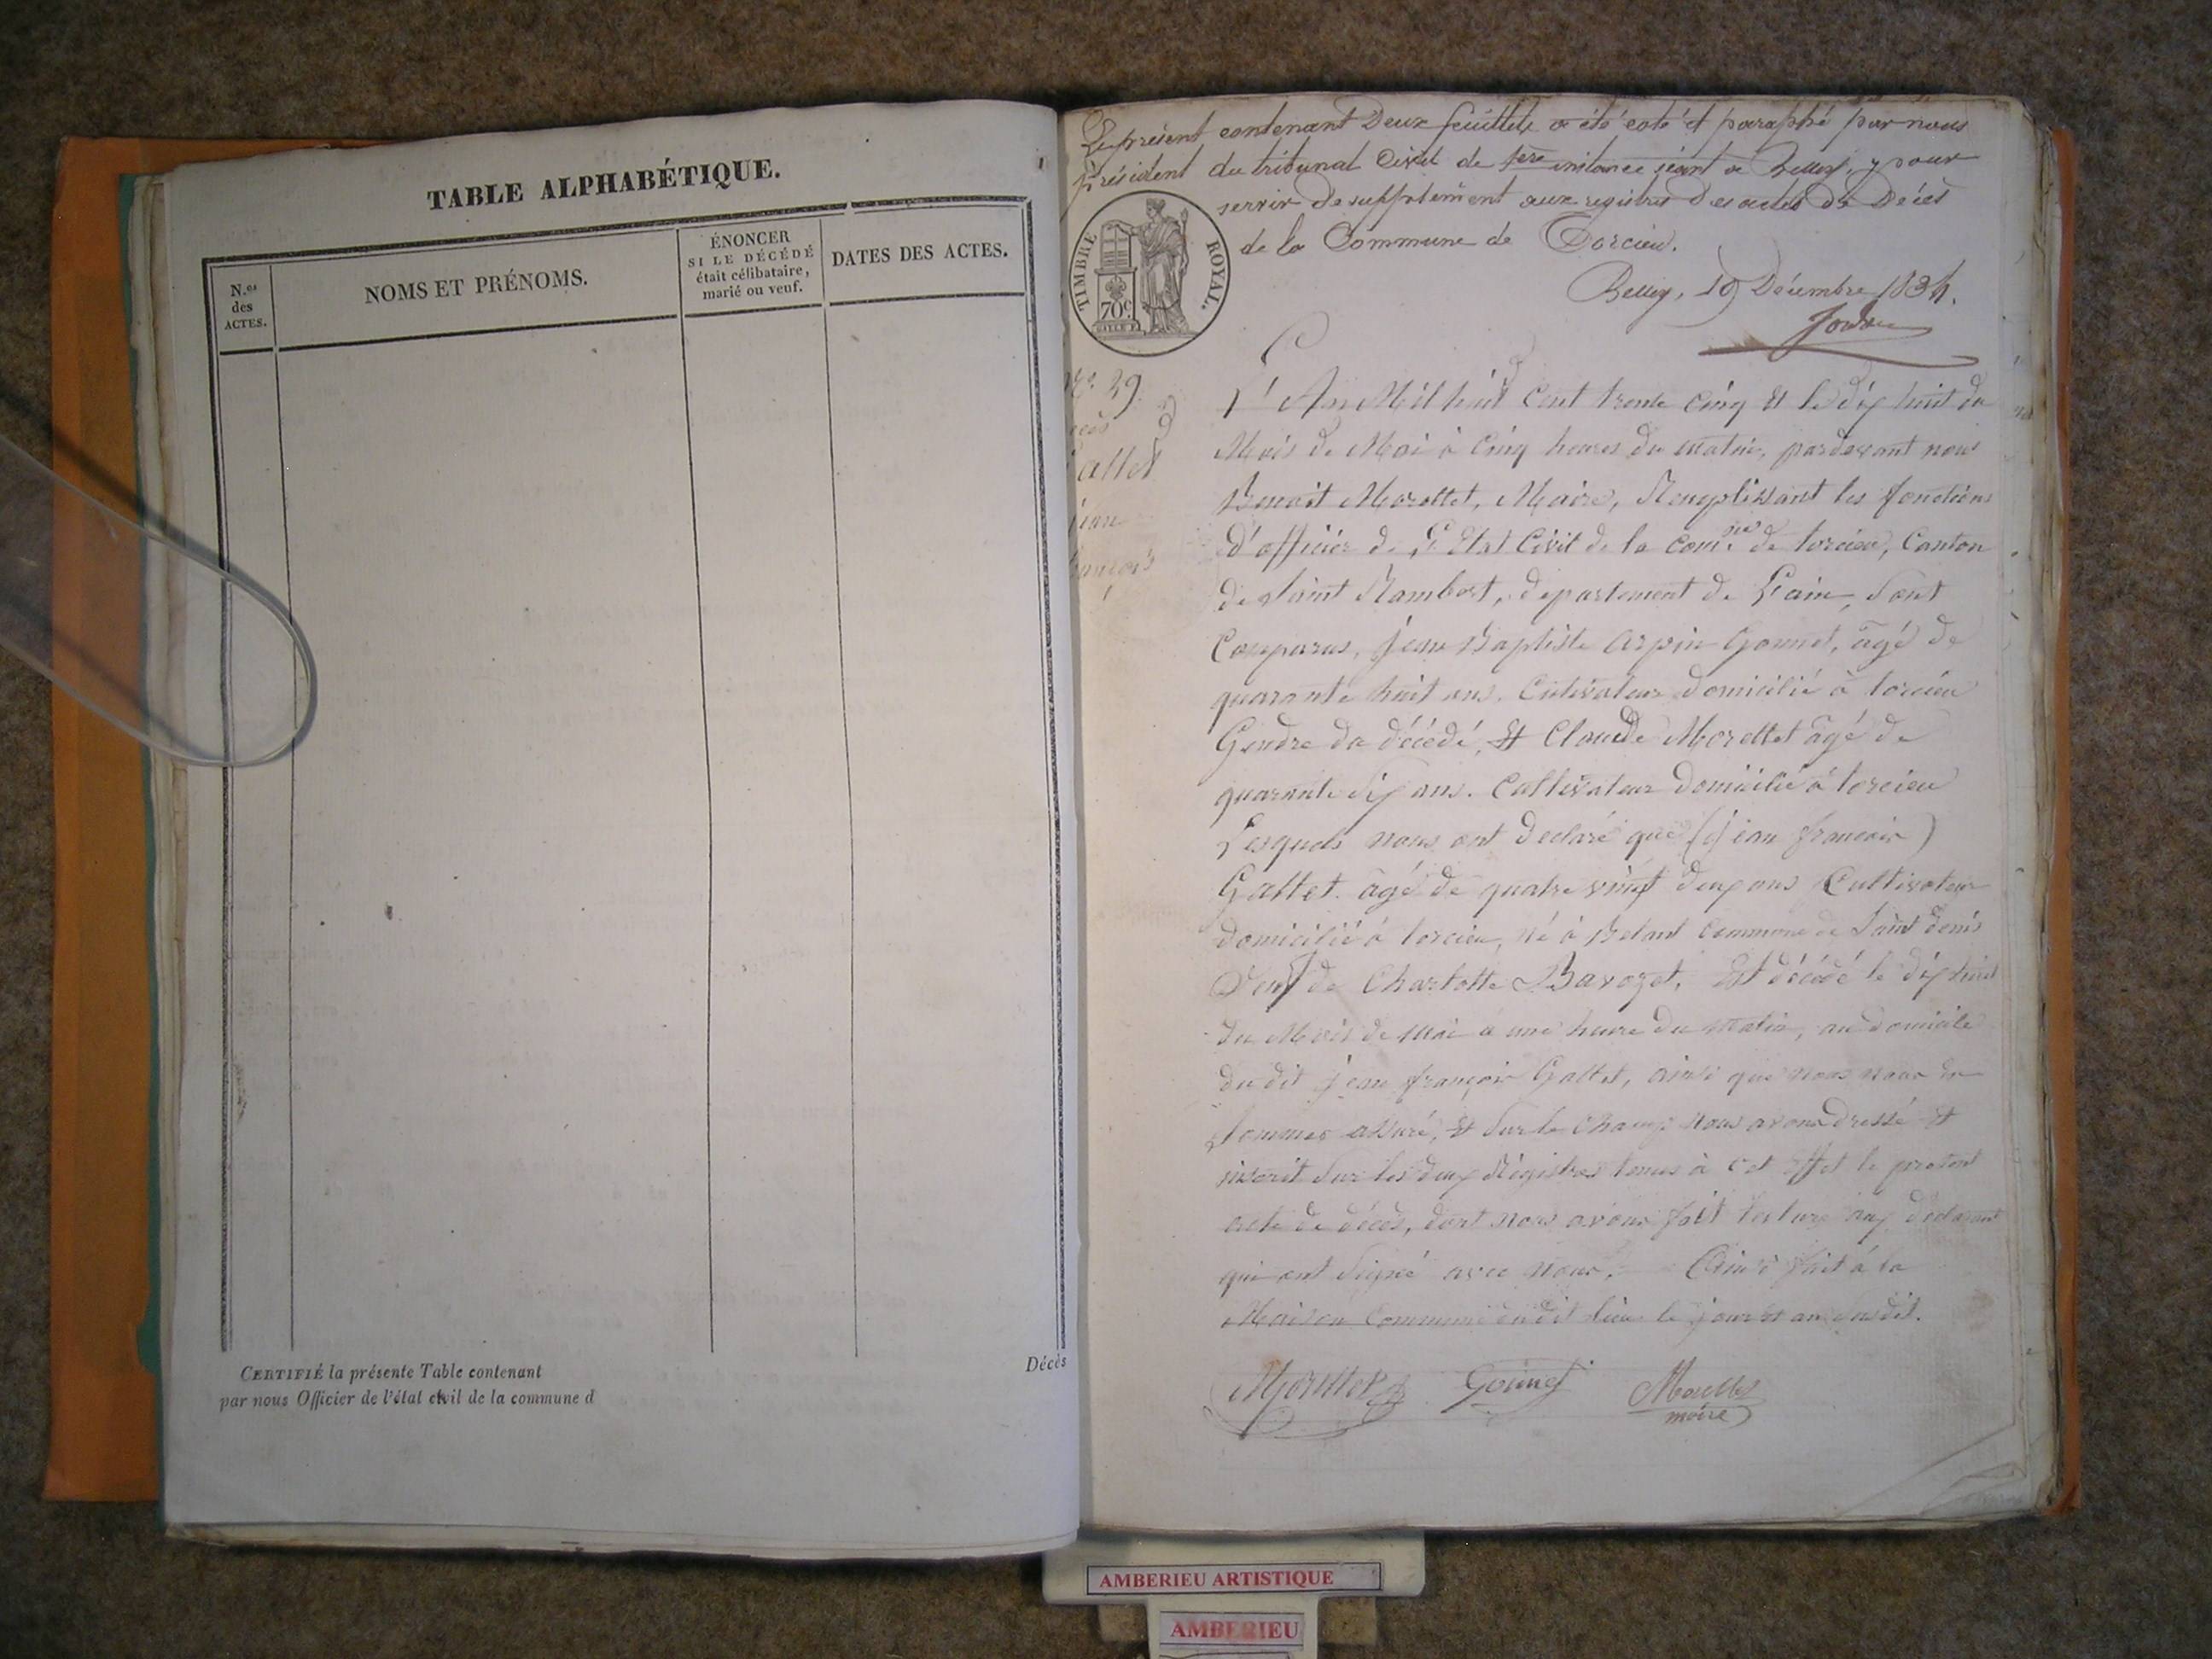 TABLE ALPHABÉTIQUE.
N.os des ACTES.
NOMS ET PRÉNOMS.
ÉNONCER
SI LE DÉCÉDÉ
était célibataire,
marié ou veuf.
DATES DES ACTES.
CERTIFIÉ la présente Table contenant
par nous Officier de l'état civil de la commune d
Décès
Le présent contenant Deux feuillets a été coté et paraphé par nous
président du tribunal Civil de 1ère instance séant à Belley, pour
servir de supplément aux registres des actes de Décès
de la Commune de Torcieu.
Belley, 19 Décembre 1834.
TIMBRE ROYAL.
70c
N.o 29.
L'An Mil huit Cent trente Cinq et le dix huit du
Mois de Mai à Cinq heures du matin, pardevant nous
Benoit Morettet, Maire, Remplissant les fonctions
d'officier de L'Etat Civil de la Comne de torcieu, Canton
de Saint Rambert, département de L'ain, Sont
Comparus, jean Baptiste Arpin Gonnet, âgé de
quarante huit ans. Cultivateur domicilié à torcieu
Gendre du décédé, et Claude Morettet âgé de
quarante Six ans. Cultivateur domicilié à torcieu
Lesquels nous ont declaré que (jean francois)
Gallet. âgé de quatre vingt deux ans Cultivateur
domicilié à torcieu, né à Betant Commune de Saint denis
Veuf de Charlotte Bavozet, Est décédé le dix huit
du Mois de mai à une heure du matin, au domicile
du dit jean françois Gallet, ainsi que nous nous en
Sommes assuré, et Sur le Champ nous avons dressé et
inscrit Sur les deux Régistres tenus à cet Effet le present
acte de décès, dont nous avons fait lecture aux déclarant
qui ont Signé avec nous. Ainsi fait à la
Maison Commune du dit lieu le jour et an Susdit.
Morettet Gonnet Morettet
maire
AMBERIEU ARTISTIQUE
AMBERIEU